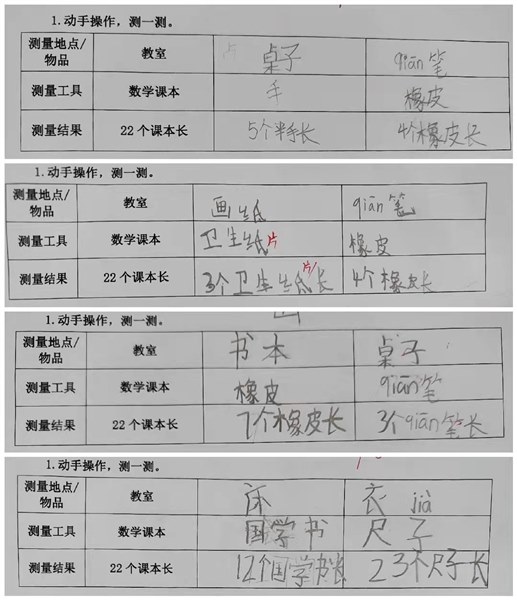 1.动手操作，测一测。
测量地点/物品 教室 桌子 qiān笔
测量工具 数学课本 手 橡皮
测量结果 22个课本长 5个半手长 4个橡皮长
1.动手操作，测一测。
测量地点/物品 教室 画纸 qiān笔
测量工具 数学课本 卫生纸片 橡皮
测量结果 22个课本长 3个卫生纸片长 4个橡皮长
1.动手操作，测一测。
测量地点/物品 教室 书本 桌子
测量工具 数学课本 橡皮 qiān笔
测量结果 22个课本长 7个橡皮长 3个qiān笔长
1.动手操作，测一测。
测量地点/物品 教室 床 衣jià
测量工具 数学课本 国学书 尺子
测量结果 22个课本长 12个国学书长 23个尺子长